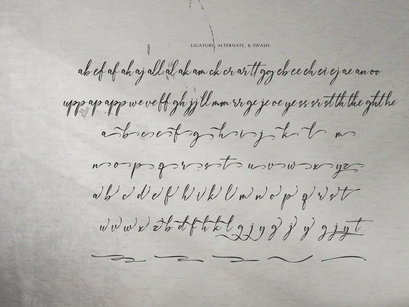 LIGATURE, ALTERNATE, & SWASH
ab ef af ah aj all al ak am ck cr ar tt gg eb ee ch ei ej ae an oo
upp ap app we ve ff gh jj ll mm rr ge je oe ye ss sr st th the ght he
a b c e f g h i j k t m
n o p q r s t u v w x y z
a b c d e f h i k l m n o p q r s t
u v w x z b d f h k l g j y g j y g j y t